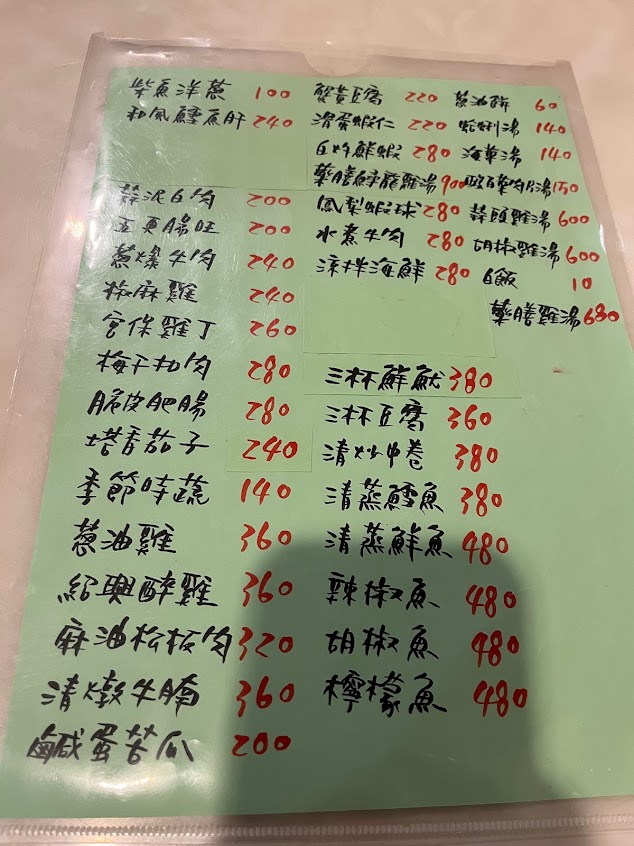 柴魚洋蔥 100
和風鱈魚肝 240
蒜泥白肉 200
五更腸旺 200
蔥爆牛肉 240
椒麻雞 240
宮保雞丁 260
梅干扣肉 280
脆皮肥腸 280
塔香茄子 240
季節時蔬 140
蔥油雞 360
紹興醉雞 360
麻油松板肉 320
清燉牛腩 360
鹹蛋苦瓜 200
蟹黃豆腐 220
滑蛋蝦仁 220
白灼鮮蝦 280
鳳梨蝦球 280
水煮牛肉 280
涼拌海鮮 280
三杯鮮魷 380
三杯豆腐 360
清炒中卷 380
清蒸鱈魚 380
清蒸鮮魚 480
辣椒魚 480
胡椒魚 480
檸檬魚 480
蔥油餅 60
蛤蜊湯 140
海菜湯 140
蒜頭雞湯 600
胡椒雞湯 600
白飯 10
藥膳雞湯 680